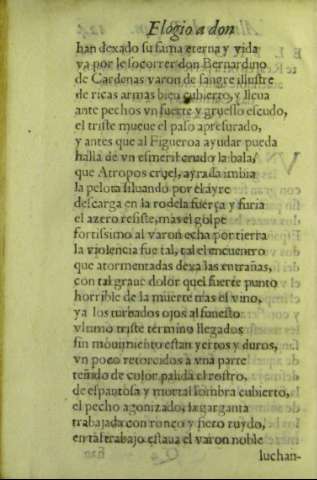 Elogio a don
han dexado su fama eterna y vida
va por le socorrer don Bernardino
de Cardenas varon de sangre illustre
de ricas armas bien cubierto, y lleua
ante pechos vn fuerte y gruesso escudo,
el triste mueue el passo apresurado,
y antes que al Figueroa ayudar pueda
halla de vn esmeril crudo la bala,
que Atropos cruel, ayrada imbia
la pelota siluando por el ayre
descarga en la rodela fuerça y furia
el azero resiste, mas el golpe
fortissimo al varon echa por tierra
la violencia fue tal, tal el encuentro
que atormentadas dexa las entrañas,
con tal graue dolor quel fuerte punto
horrible de la muerte mas el vino,
ya los turbados ojos al funesto
vltimo triste término llegados
sin mouimiento estan yertos y duros,
vn poco retorcidos a vna parte
teñido de color palida el rostro,
de espantosa y mortal sombra cubierto,
el pecho agonizado, la garganta
trabajada con ronco y fiero ruydo,
en tal trabajo estaua el varon noble
luchan-